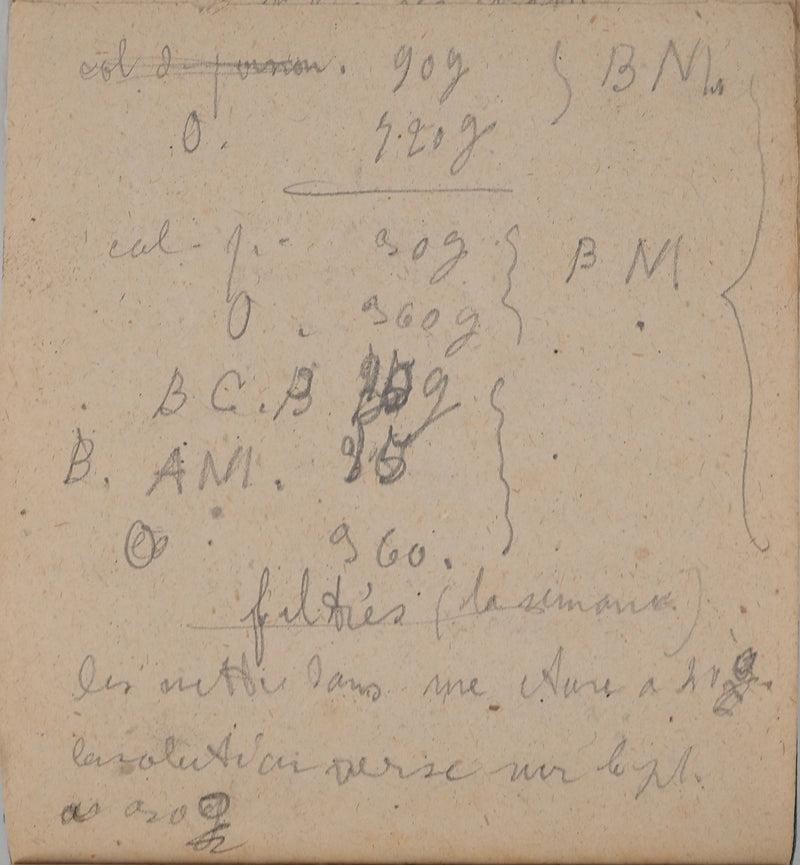 col d. poisson. 90g } B M.
O. 720g
col. p. 30g } B M
O. 360g
B C. B g
B. A M. 35
O 360.
filtrés (la semaine)
les mettre dans une étuve a
la solution verse sur le pl.
a 30g